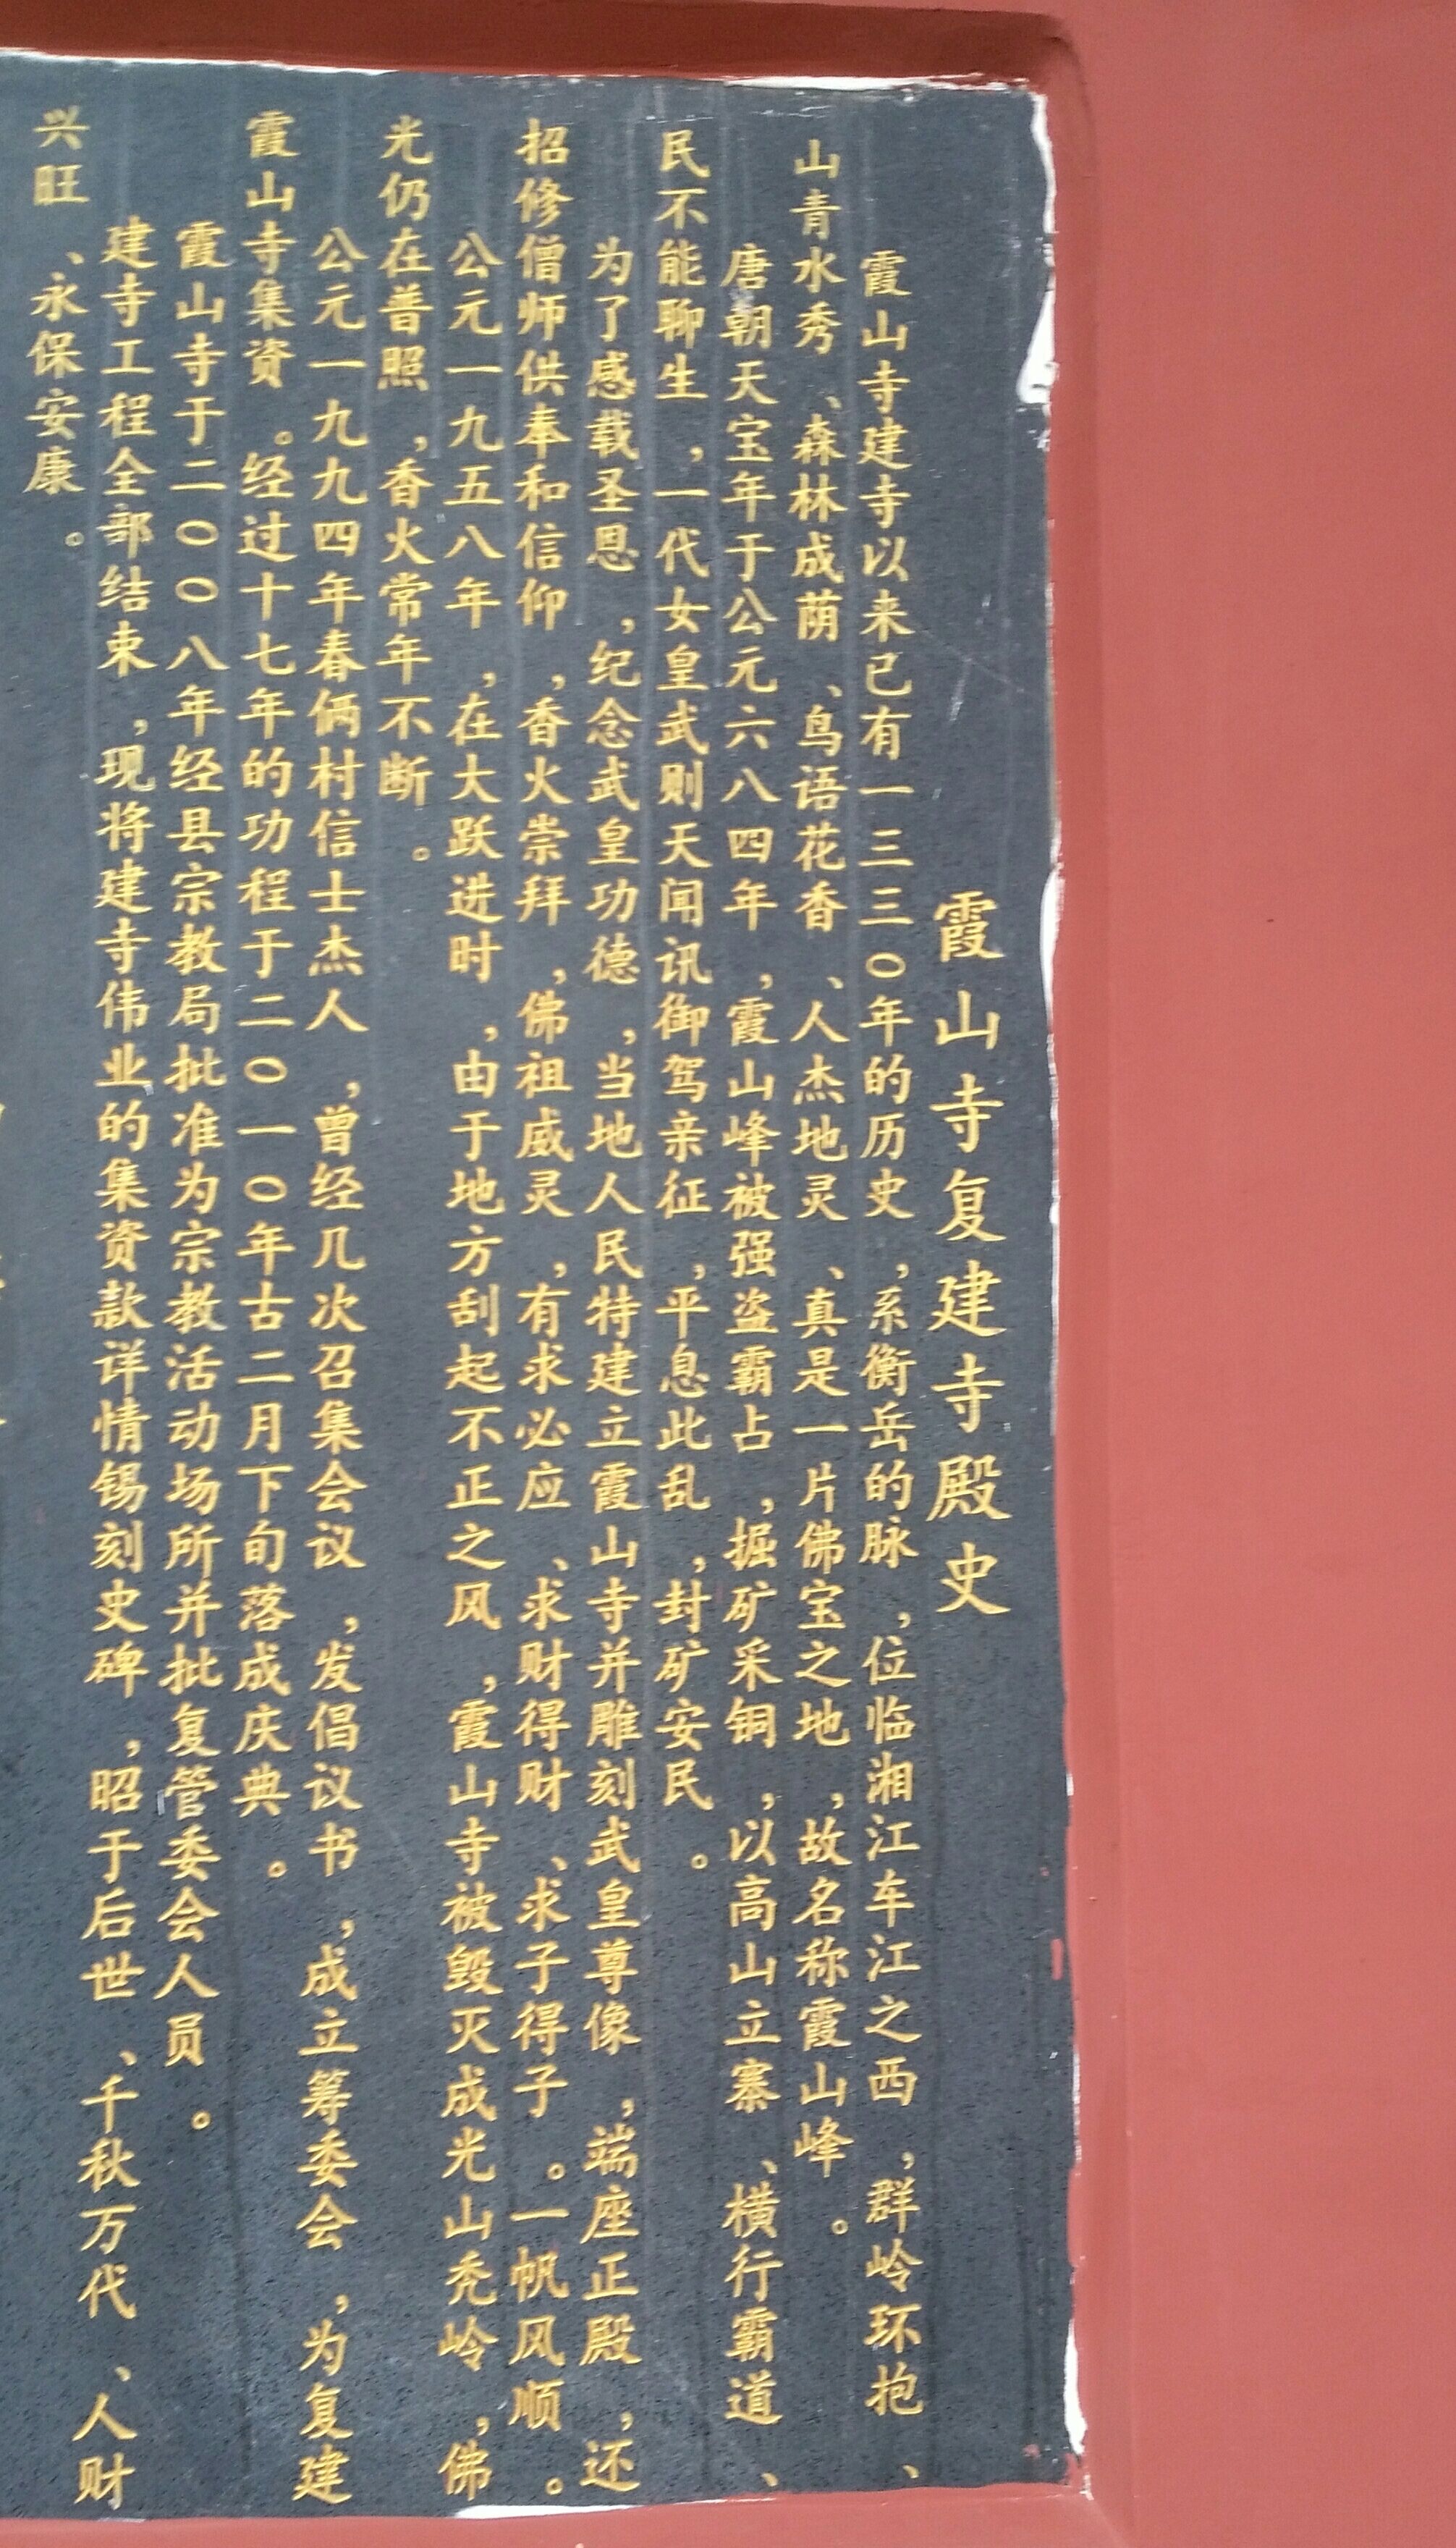 霞山寺复建寺殿史
霞山寺建寺以来已有一三三〇年的历史，系衡岳的脉，位临湘江车江之西，群岭环抱、
山青水秀、森林成荫、鸟语花香、人杰地灵、真是一片佛宝之地，故名称霞山峰。
唐朝天宝年于公元六八四年，霞山峰被强盗霸占，掘矿采铜，以高山立寨、横行霸道、
民不能聊生，一代女皇武则天闻讯御驾亲征，平息此乱，封矿安民。
为了感载圣恩，纪念武皇功德，当地人民特建立霞山寺并雕刻武皇尊像，端座正殿，还
招修僧师供奉和信仰，香火崇拜，佛祖威灵，有求必应、求财得财、求子得子。一帆风顺。
公元一九五八年，在大跃进时，由于地方刮起不正之风，霞山寺被毁灭成光山秃岭，佛
光仍在普照，香火常年不断。
公元一九九四年春俩村信士杰人，曾经几次召集会议，发倡议书，成立筹委会，为复建
霞山寺集资。经过十七年的功程于二〇一〇年古二月下旬落成庆典。
霞山寺于二〇〇八年经县宗教局批准为宗教活动场所并批复管委会人员。
建寺工程全部结束，现将建寺伟业的集资款详情锡刻史碑，昭于后世、千秋万代、人财
兴旺、永保安康。